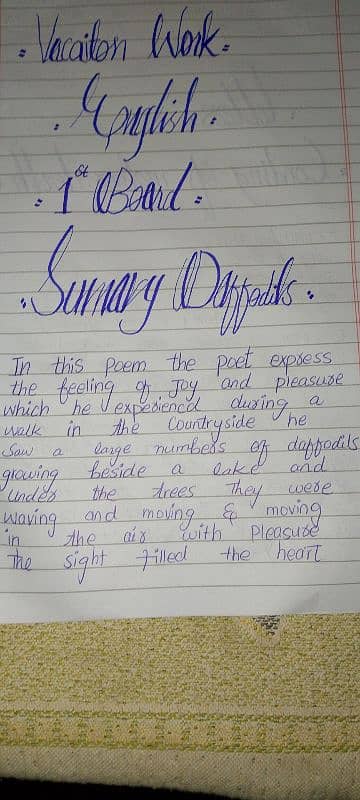 Vacaiton Work.
English.
1st Board.
Sumary Daffodils.
In this poem the poet express
the feeling of Joy and pleasure
which he experiencd during a
walk in the Countryside he
Saw a large numbers of daffodils
growing beside a lake and
under the trees They were
waving and moving & moving
in the air with Pleasure
The sight filled the heart